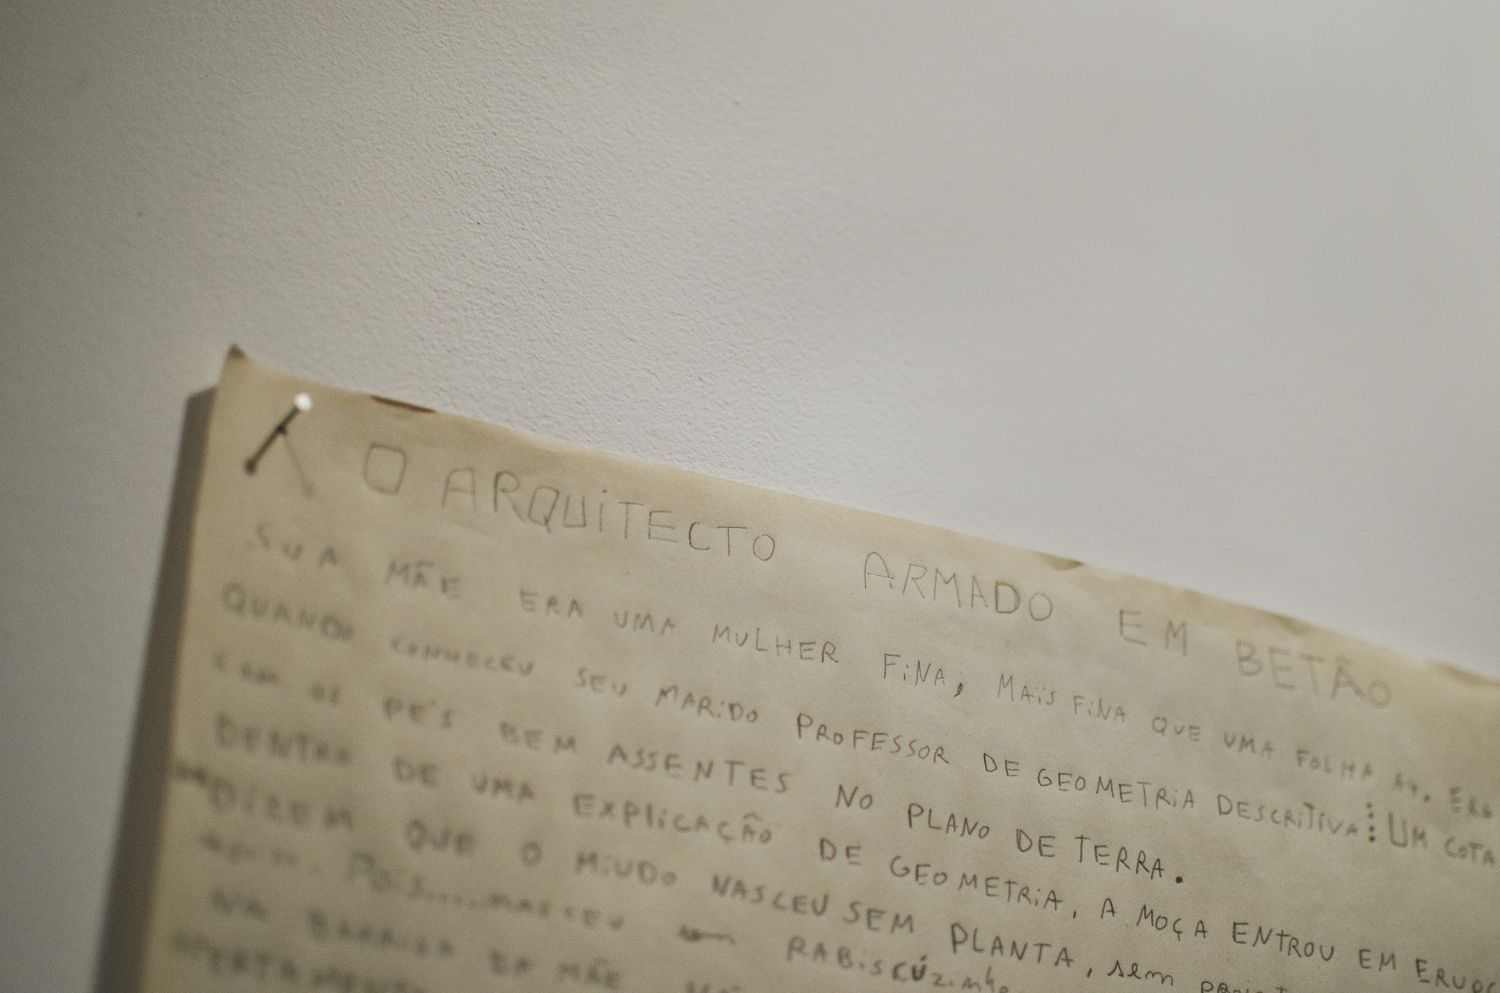 O ARQUiTECTO ARMADO EM BETÃO
SUA MÃE ERA UMA MULHER FiNA, MAiS FiNA QUE UMA FOLHA A4. ERA
QUANDO CONHECEU SEU MARiDO PROFESSOR DE GEOMETRiA DESCRiTiVA UM COTA
COM OS PÉS BEM ASSENTES NO PLANO DE TERRA.
DENTRO DE UMA EXPLiCAÇÃO DE GEOMETRiA, A MOÇA ENTROU EM
DiZEM QUE O MiUDO NASCEU SEM PLANTA, sem
Pois.... nasceu sem RABiSCÚZinho
NA BARRiGA DA MÃE